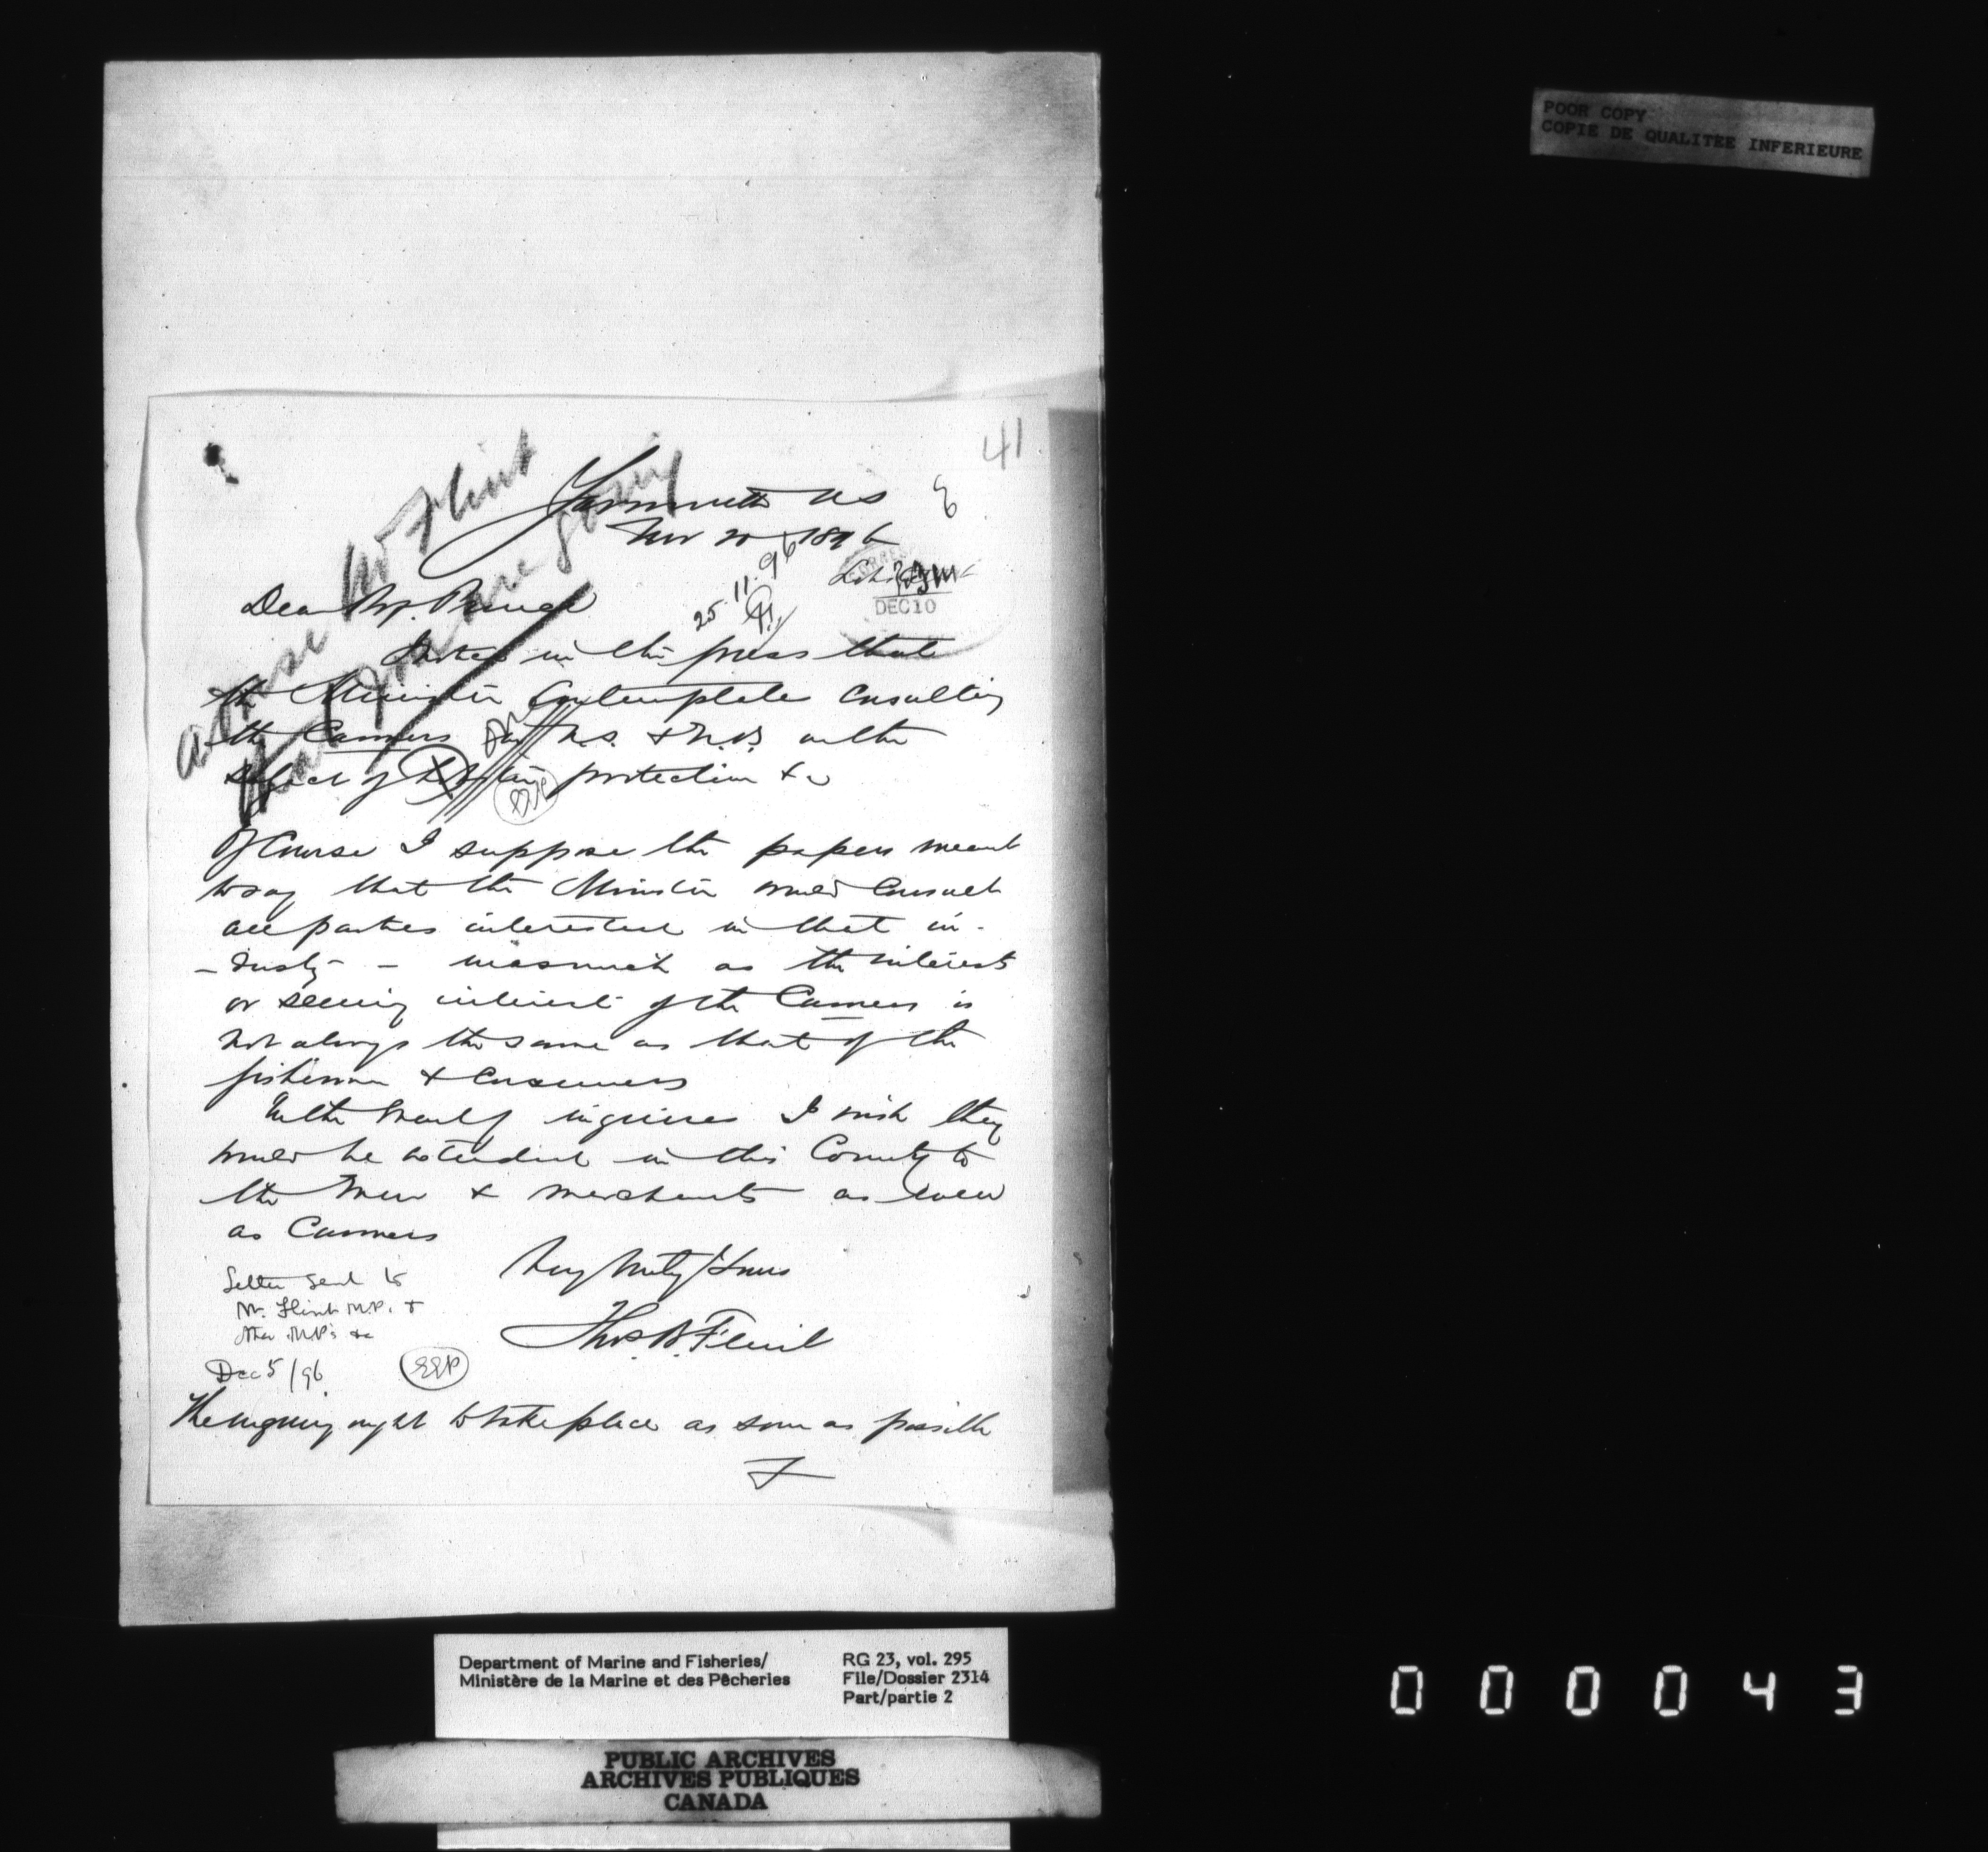 POOR COPY
COPIE DE QUALITEE INFERIEURE
41
Yarmouth NS
Nov 20 1896
25.11.96
DEC 10
Dear Mr.
I notice in the press that
the Minister contemplates consulting
the Canners in N.S. & N.B. on the
subject of protection &c
Of course I suppose the papers meant
to say that the Minister would consult
all parties interested in that in-
-dustry - inasmuch as the interests
or seeming interest of the Canners is
not always the same as that of the
fishermen & consumers
inquiries I wish they
would be extended in this County to
the men & merchants as well
as Canners
Very truly Yours
Thos. B. Flint
Letter sent to
Mr. Flint M.P. &
other M.P's &c
Dec 5/96
EEP
The inquiry ought to take place as soon as possible
F
advise Mr Flint
Department of Marine and Fisheries/
Ministère de la Marine et des Pêcheries
RG 23, vol. 295
File/Dossier 2314
Part/partie 2
PUBLIC ARCHIVES
ARCHIVES PUBLIQUES
CANADA
000043